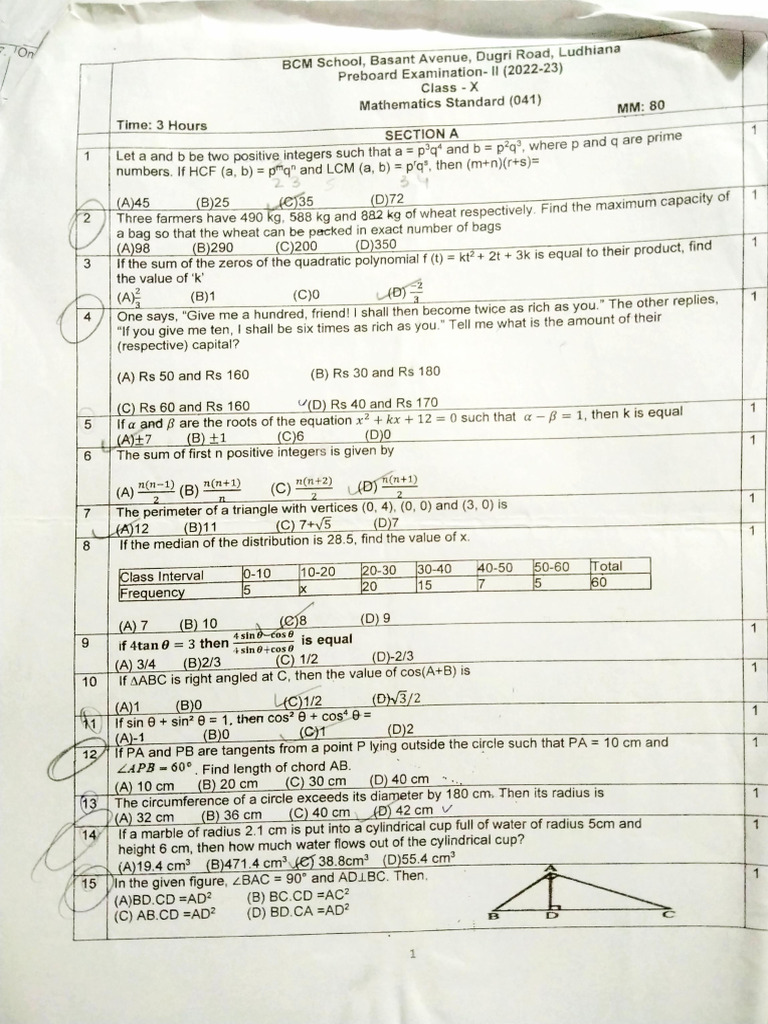 7. On
BCM School, Basant Avenue, Dugri Road, Ludhiana
Preboard Examination- II (2022-23)
Class - X
Mathematics Standard (041)
Time: 3 Hours MM: 80
SECTION A
1 Let a and b be two positive integers such that a = p³q⁴ and b = p²q³, where p and q are prime 1
numbers. If HCF (a, b) = pᵐqⁿ and LCM (a, b) = pʳqˢ, then (m+n)(r+s)=
2 3 5 3 4
(A)45 (B)25 (C)35 (D)72
2 Three farmers have 490 kg, 588 kg and 882 kg of wheat respectively. Find the maximum capacity of 1
a bag so that the wheat can be packed in exact number of bags
(A)98 (B)290 (C)200 (D)350
3 If the sum of the zeros of the quadratic polynomial f (t) = kt² + 2t + 3k is equal to their product, find 1
the value of 'k'
(A) 2/3 (B)1 (C)0 (D) -2/3
4 One says, "Give me a hundred, friend! I shall then become twice as rich as you." The other replies, 1
"If you give me ten, I shall be six times as rich as you." Tell me what is the amount of their
(respective) capital?
(A) Rs 50 and Rs 160 (B) Rs 30 and Rs 180
(C) Rs 60 and Rs 160 (D) Rs 40 and Rs 170
5 If α and β are the roots of the equation x² + kx + 12 = 0 such that α − β = 1, then k is equal 1
(A)±7 (B) ±1 (C)6 (D)0
6 The sum of first n positive integers is given by 1
(A) n(n−1)/2 (B) n(n+1)/n (C) n(n+2)/2 (D) n(n+1)/2
7 The perimeter of a triangle with vertices (0, 4), (0, 0) and (3, 0) is 1
(A)12 (B)11 (C) 7+√5 (D)7
8 If the median of the distribution is 28.5, find the value of x. 1
Class Interval 0-10 10-20 20-30 30-40 40-50 50-60 Total
Frequency 5 x 20 15 7 5 60
(A) 7 (B) 10 (C)8 (D) 9
9 if 4tan θ = 3 then (4 sin θ−cos θ)/(4sin θ+cos θ) is equal 1
(A) 3/4 (B)2/3 (C) 1/2 (D)-2/3
10 If ∆ABC is right angled at C, then the value of cos(A+B) is 1
(A)1 (B)0 (C)1/2 (D)√3/2
11 If sin θ + sin² θ = 1, then cos² θ + cos⁴ θ = 1
(A)-1 (B)0 (C)1 (D)2
12 If PA and PB are tangents from a point P lying outside the circle such that PA = 10 cm and 1
∠APB = 60°. Find length of chord AB.
(A) 10 cm (B) 20 cm (C) 30 cm (D) 40 cm
13 The circumference of a circle exceeds its diameter by 180 cm. Then its radius is 1
(A) 32 cm (B) 36 cm (C) 40 cm (D) 42 cm
14 If a marble of radius 2.1 cm is put into a cylindrical cup full of water of radius 5cm and 1
height 6 cm, then how much water flows out of the cylindrical cup?
(A)19.4 cm³ (B)471.4 cm³ (C) 38.8cm³ (D)55.4 cm³
15 In the given figure, ∠BAC = 90° and AD⊥BC. Then, 1
(A)BD.CD =AD² (B) BC.CD =AC²
(C) AB.CD =AD² (D) BD.CA =AD²
A
B D C
1